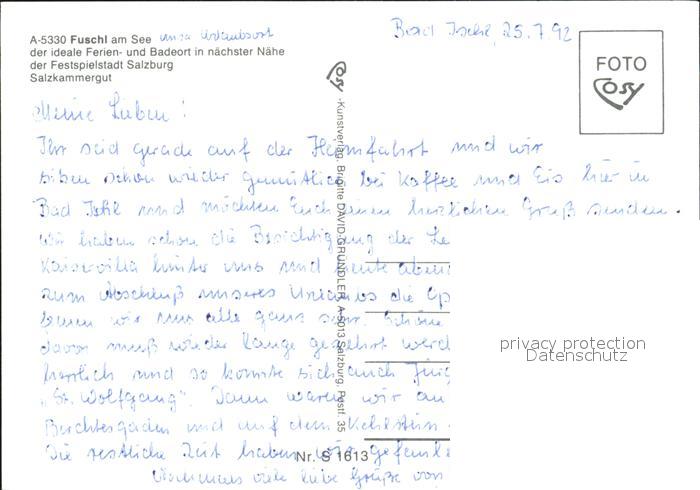 A-5330 Fuschl am See unser Urlaubsort
der ideale Ferien- und Badeort in nächster Nähe
der Festspielstadt Salzburg
Salzkammergut
Bad Ischl, 25.7.92
FOTO
Cosy
Cosy -Kunstverlag, Brigitte DAVID-GRÜNDLER, A-5013 Salzburg, Postf. 35
Meine Lieben!
Ihr seid gerade auf der Heimfahrt und wir
sitzen schon wieder gemütlich bei Kaffee und Eis hier in
Bad Ischl und möchten Euch einen herzlichen Gruß senden.
Wir haben schon die Besichtigung der
Kaiservilla hinter uns und heute
zum Abschluß unseres Urlaubs die
wir uns alle ganz sehr. Schöne
davor muß wieder lange
herrlich und so konnte sich auch
"St. Wolfgang". Dann waren wir
Berchtesgaden und auf dem Kehlstein.
Die restliche Zeit haben wir
Nochmals viele liebe Grüße von
privacy protection
Datenschutz
Nr. S 1613